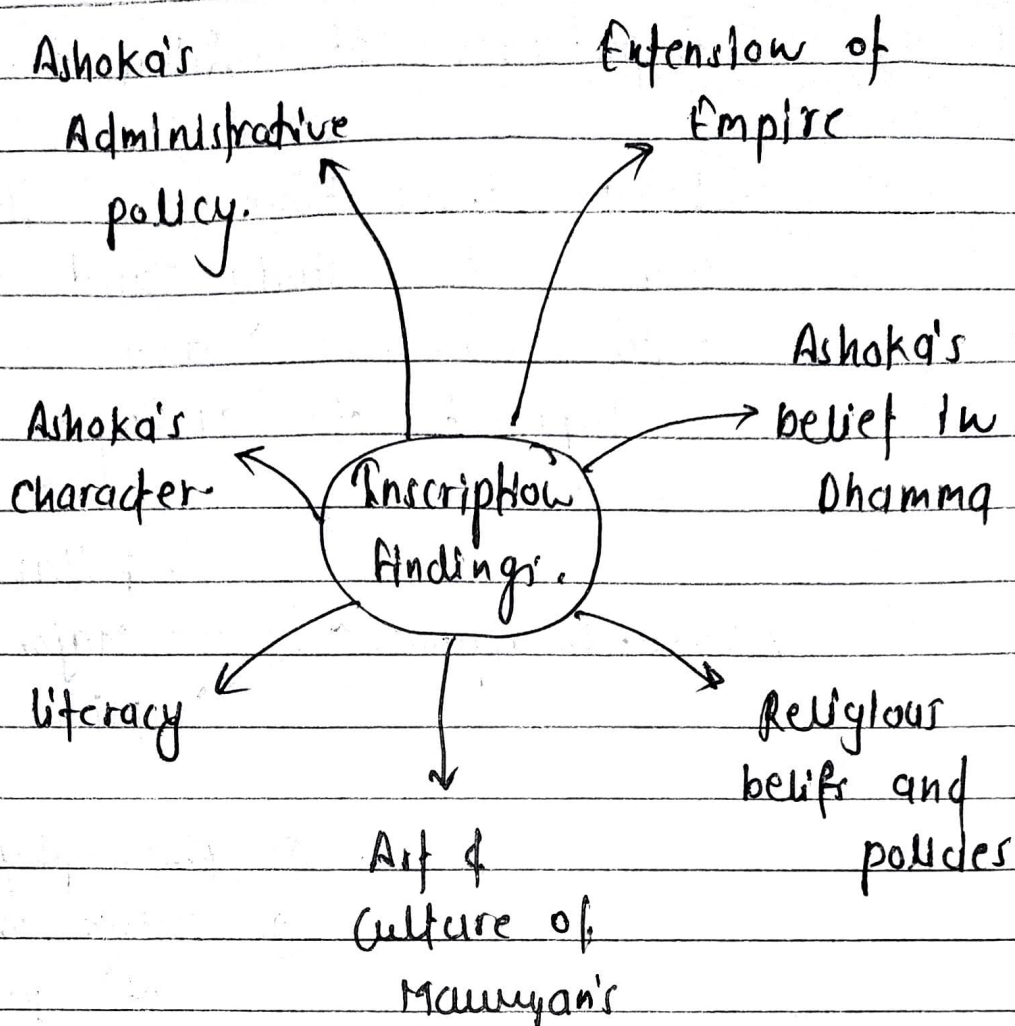 Ashoka's
Administrative
policy.
Extension of
Empire
Ashoka's
belief in
Dhamma
Ashoka's
character
Inscription
findings.
literacy
Religious
belifs and
policies
Art &
Culture of
Mauryan's